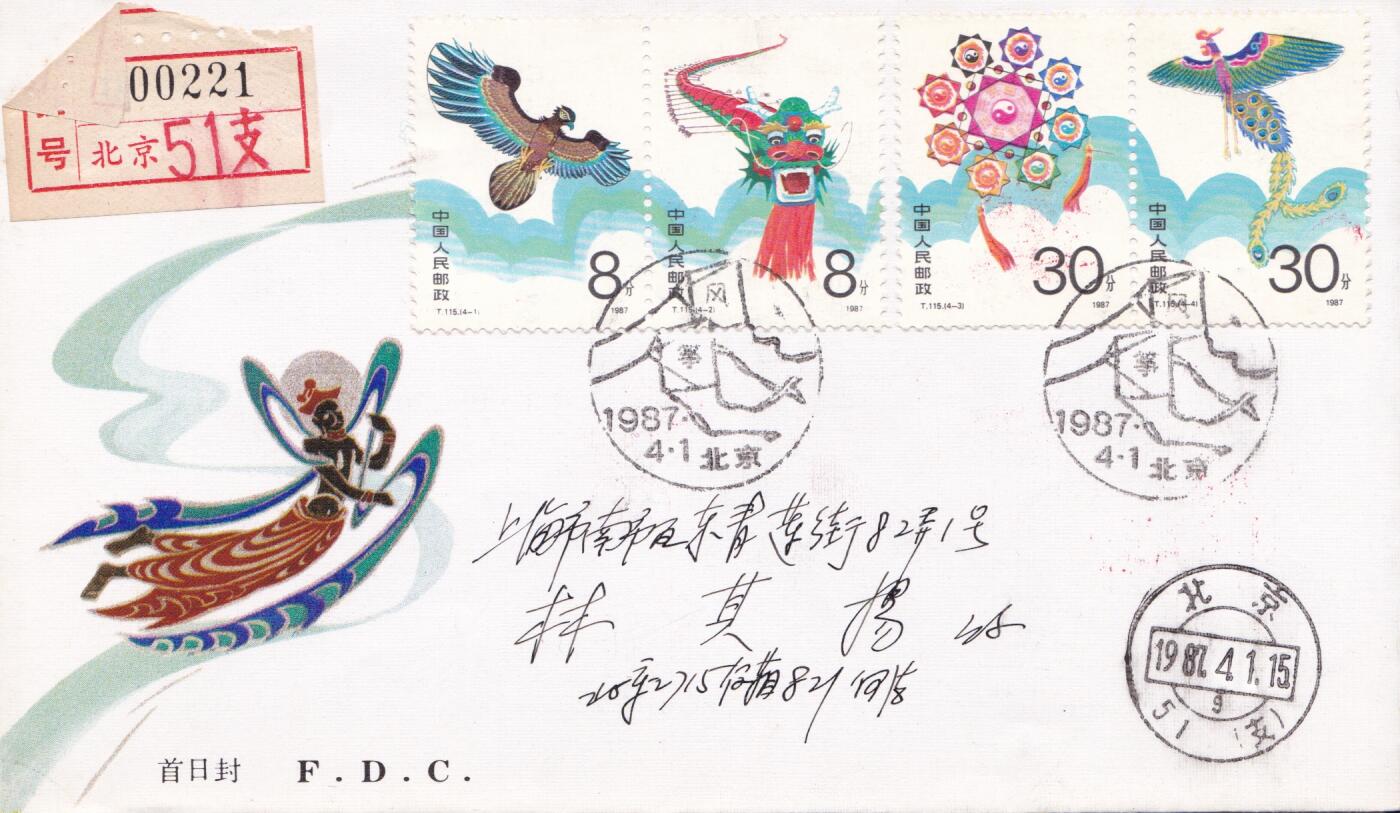 00221
号 北京 51支
中国人民邮政
8分
T.115.(4-1) 1987
中国人民邮政
8分
T.115.(4-2) 1987
中国人民邮政
30分
T.115.(4-3) 1987
中国人民邮政
30分
T.115.(4-4) 1987
风
筝
1987.
4.1 北京
风
筝
1987.
4.1 北京
上海市南市区东青莲街82弄1号
林其
北京2715信箱821
北京
1987.4.1.15
9
51 (支)
首日封 F.D.C.